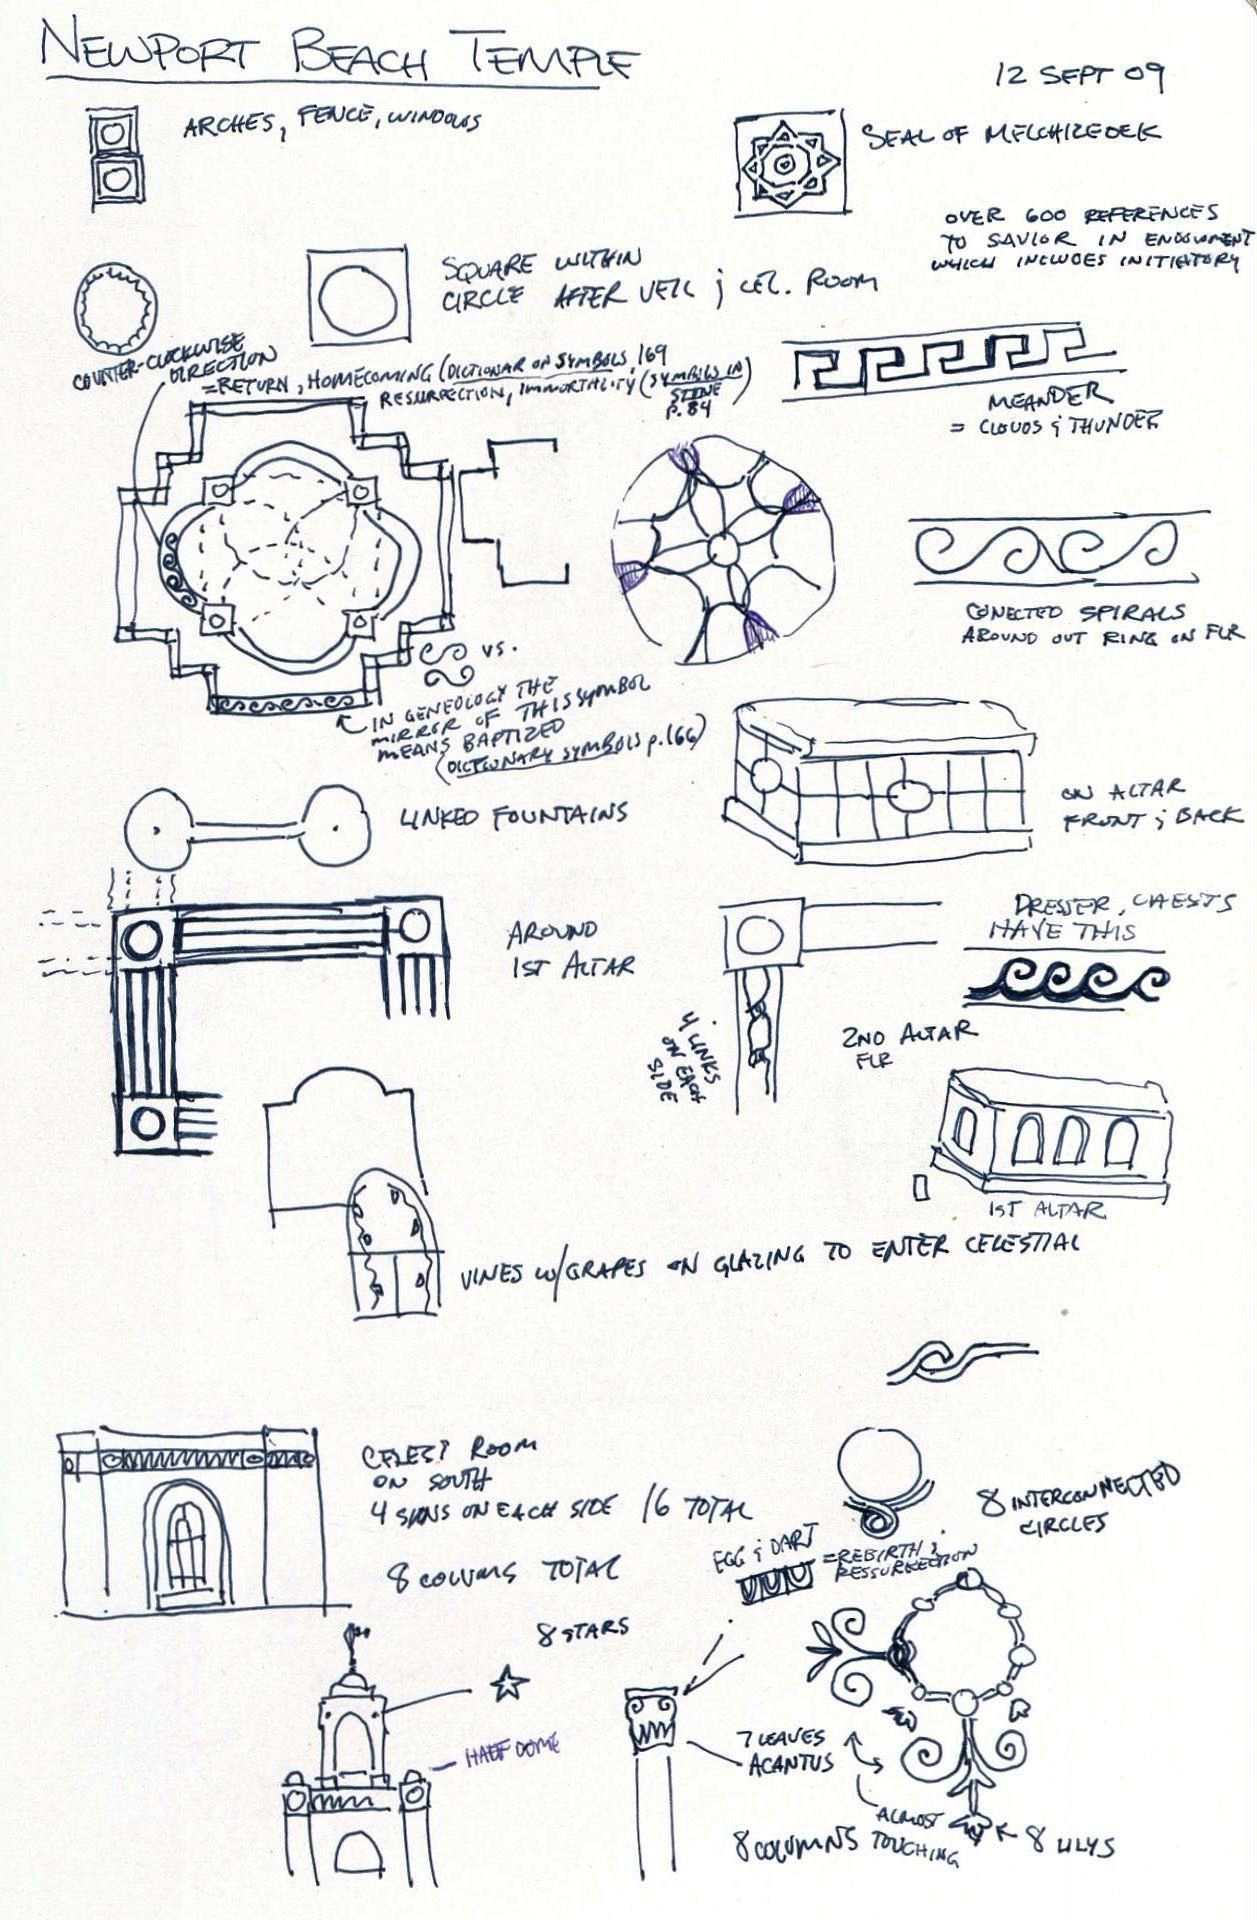 NEWPORT BEACH TEMPLE
12 SEPT 09
ARCHES, FENCE, WINDOWS
SEAL OF MELCHIZEDEK
OVER 600 REFERENCES
TO SAVIOR IN ENDOWMENT
WHICH INCLUDES INITIATORY
SQUARE WITHIN
CIRCLE AFTER VEIL & CEL. ROOM
COUNTER-CLOCKWISE
DIRECTION
= RETURN, HOMECOMING (DICTIONAR OF SYMBOLS, 169
RESURRECTION, IMMORTALITY (SYMBOLS IN
STONE
P. 84)
MEANDER
= CLOUDS & THUNDER
CONECTED SPIRALS
AROUND OUT RING ON FLR
VS.
IN GENEOLOGY THE
MIRROR OF THIS SYMBOL
MEANS BAPTIZED
(DICTIONARY SYMBOLS p.166)
LINKED FOUNTAINS
ON ALTAR
FRONT & BACK
AROUND
1ST ALTAR
DRESSER, CHESTS
HAVE THIS
4 LINKS
ON EACH
SIDE
2ND ALTAR
FLR
1ST ALTAR
VINES W/GRAPES ON GLAZING TO ENTER CELESTIAL
CELEST ROOM
ON SOUTH
4 SIGNS ON EACH SIDE 16 TOTAL
8 COLUMS TOTAL
8 INTERCONNECTED
CIRCLES
EGG & DART
= REBIRTH &
RESSURRECTION
8 STARS
HALF DOME
7 LEAVES
ACANTUS
ALMOST
TOUCHING
8 COLUMNS
8 LILYS